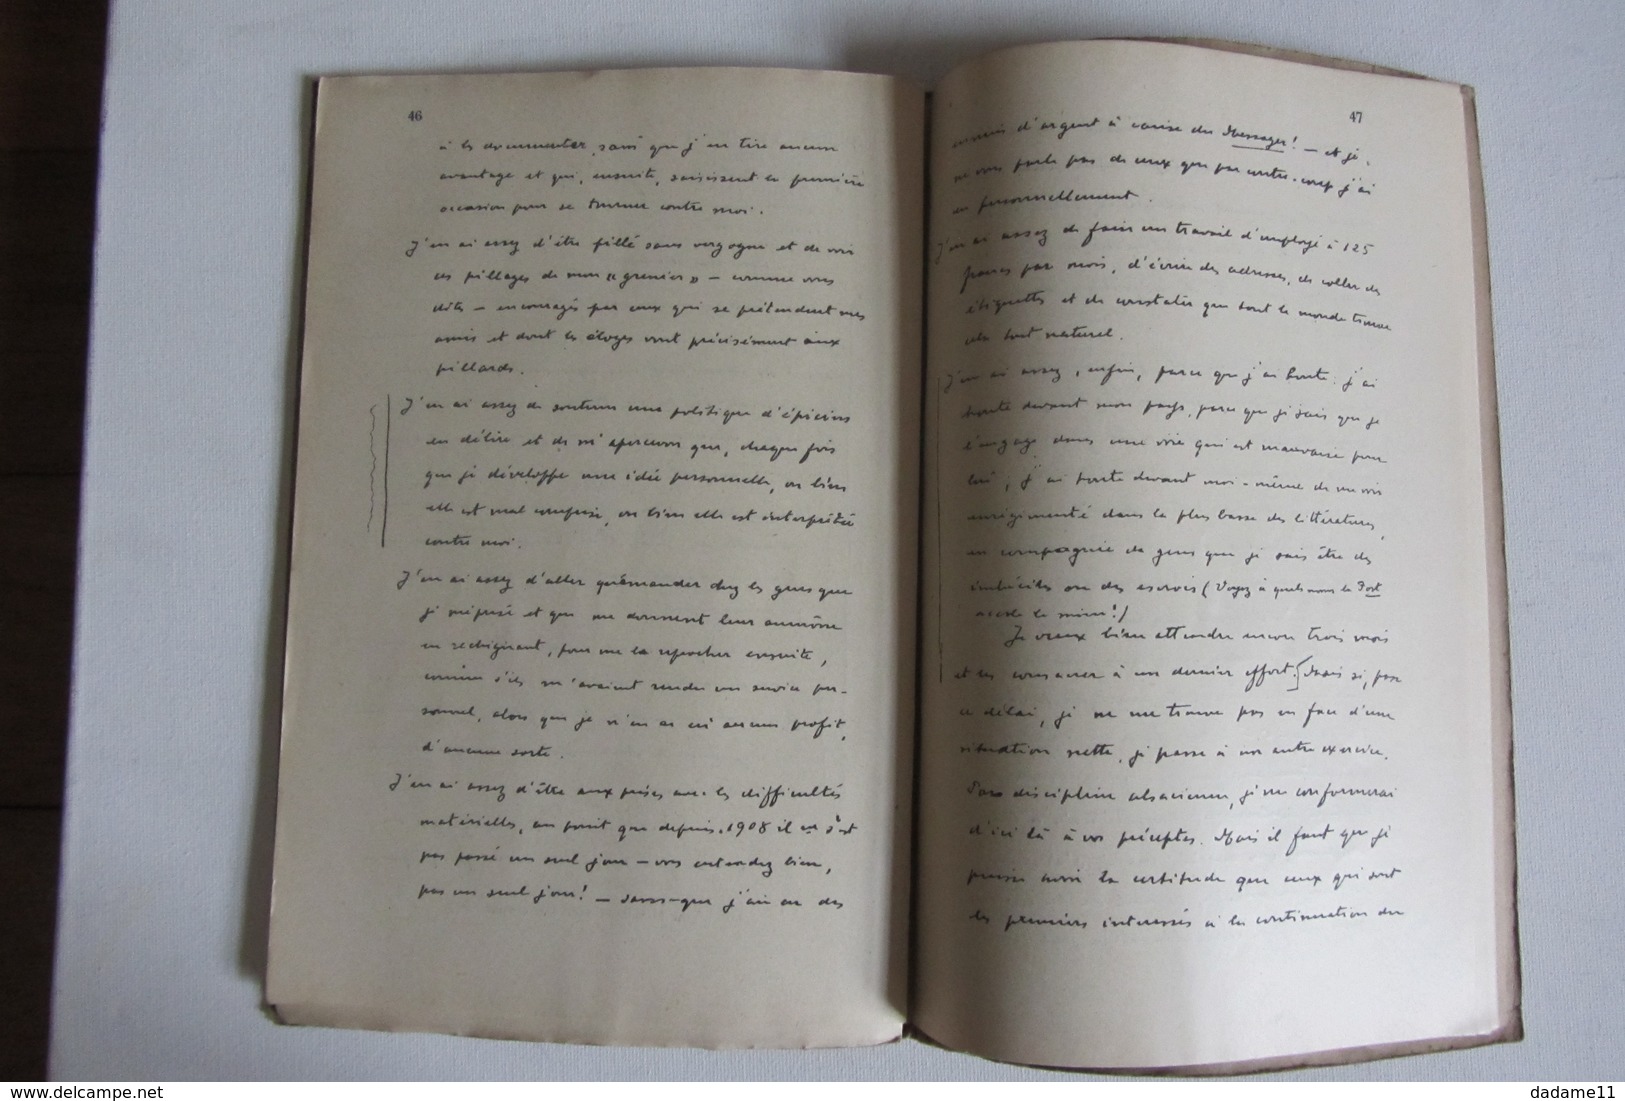 46
à les documenter, sans que j'en tire aucun
avantage et qui, ensuite, saisissent la première
occasion pour se tourner contre moi.
J'en ai assez d'être pillé sans vergogne et de voir
ces pillages de mon « grenier » – comme vous
dîtes – encouragés par ceux qui se prétendent mes
amis et dont les éloges vont précisément aux
pillards.
J'en ai assez de soutenir une politique d'épiciers
en délire et de m'apercevoir que, chaque fois
que je développe une idée personnelle, ou bien
elle est mal comprise, ou bien elle est interprétée
contre moi.
J'en ai assez d'aller quémander chez les gens que
je méprise et que me donnent leur aumône
en rechignant, pour me la reprocher ensuite,
comme s'ils m'avaient rendu un service per-
sonnel, alors que je n'en ai eu aucun profit,
d'aucune sorte.
J'en ai assez d'être aux prises avec les difficultés
matérielles, au point que depuis 1908 il ne s'est
pas passé un seul jour – vous entendez bien,
pas un seul jour ! – sans que j'aie eu des
47
ennuis d'argent à cause du Messager ! – et je
ne vous parle pas de ceux que par contre-coup j'ai
eu personnellement.
J'en ai assez de faire un travail d'employé à 125
francs par mois, d'écrire des adresses, de coller des
étiquettes et de constater que tout le monde trouve
cela tout naturel.
J'en ai assez, enfin, parce que j'ai honte. J'ai
honte devant mon pays, parce que je sais que je
l'engage dans une voie qui est mauvaise pour
lui ; j'ai honte devant moi-même de me voir
enrégimenté dans la plus basse des littératures,
en compagnie de gens que je sais être des
imbéciles ou des escrocs (Voyez à quels noms la Post
accole le mien !)
Je veux bien attendre encore trois mois
et les consacrer à un dernier effort. [Mais si, passé
ce délai, je ne me trouve pas en face d'une
situation nette, je passe à un autre exercice.
Par discipline alsacienne, je me conformerai
d'ici là à vos préceptes. Mais il faut que je
puisse avoir la certitude que ceux qui sont
les premiers intéressés à la continuation du
www.delcampe.net
dadame11